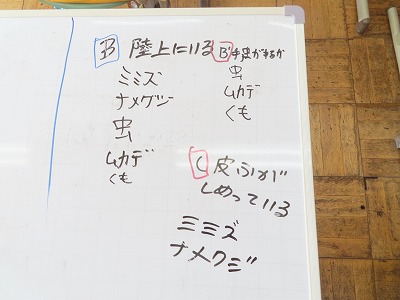 B 陸上にいる
ミミズ
ナメクジ
虫
ムカデ
くも
B' 手足があるか
虫
ムカデ
くも
C 皮ふが
しめっている
ミミズ
ナメクジ